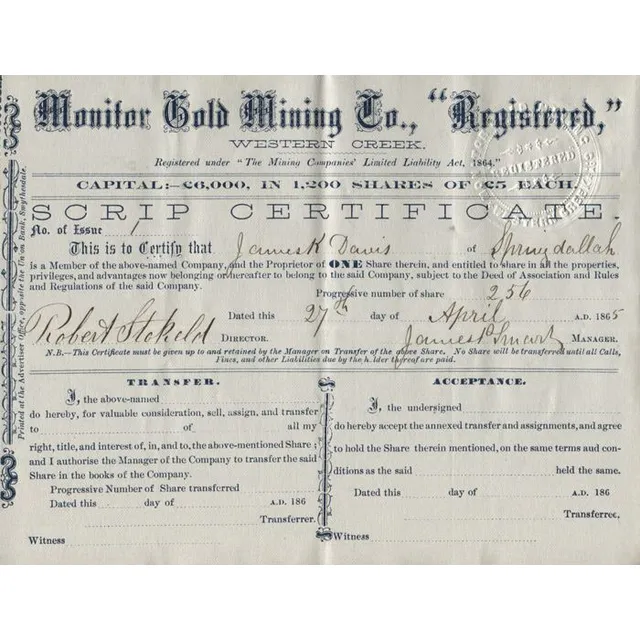 Monitor Gold Mining Co., "Registered,"
WESTERN CREEK.
Registered under "The Mining Companies' Limited Liability Act, 1864."
CAPITAL:—£6,000, IN 1,200 SHARES OF £5 EACH.
SCRIP CERTIFICATE.
No. of Issue 1
This is to Certify that James K Davis of Springdallah
is a Member of the above-named Company, and the Proprietor of ONE Share therein, and entitled to share in all the properties,
privileges, and advantages now belonging or hereafter to belong to the said Company, subject to the Deed of Association and Rules
and Regulations of the said Company.
Progressive number of share 256
Dated this 27th day of April A.D. 1865
Robert Stokeld DIRECTOR. James Smart MANAGER.
N.B.—This Certificate must be given up to and retained by the Manager on Transfer of the above Share. No Share will be transferred until all Calls,
Fines, and other Liabilities due by the h.lder thereof are paid.
TRANSFER.
I, the above-named
do hereby, for valuable consideration, sell, assign, and transfer
to of all my
right, title, and interest of, in, and to, the above-mentioned Share;
and I authorise the Manager of the Company to transfer the said
Share in the books of the Company.
Progressive Number of Share transferred
Dated this day of A.D. 186
Transferrer.
Witness
ACCEPTANCE.
I, the undersigned
do hereby accept the annexed transfer and assignments, and agree
to hold the Share therein mentioned, on the same terms and con-
ditions as the said held the same.
Dated this day of A.D. 186
Transferree.
Witness
Printed at the Advertiser Office, opposite the Union Bank, Smythesdale.
REGISTERED